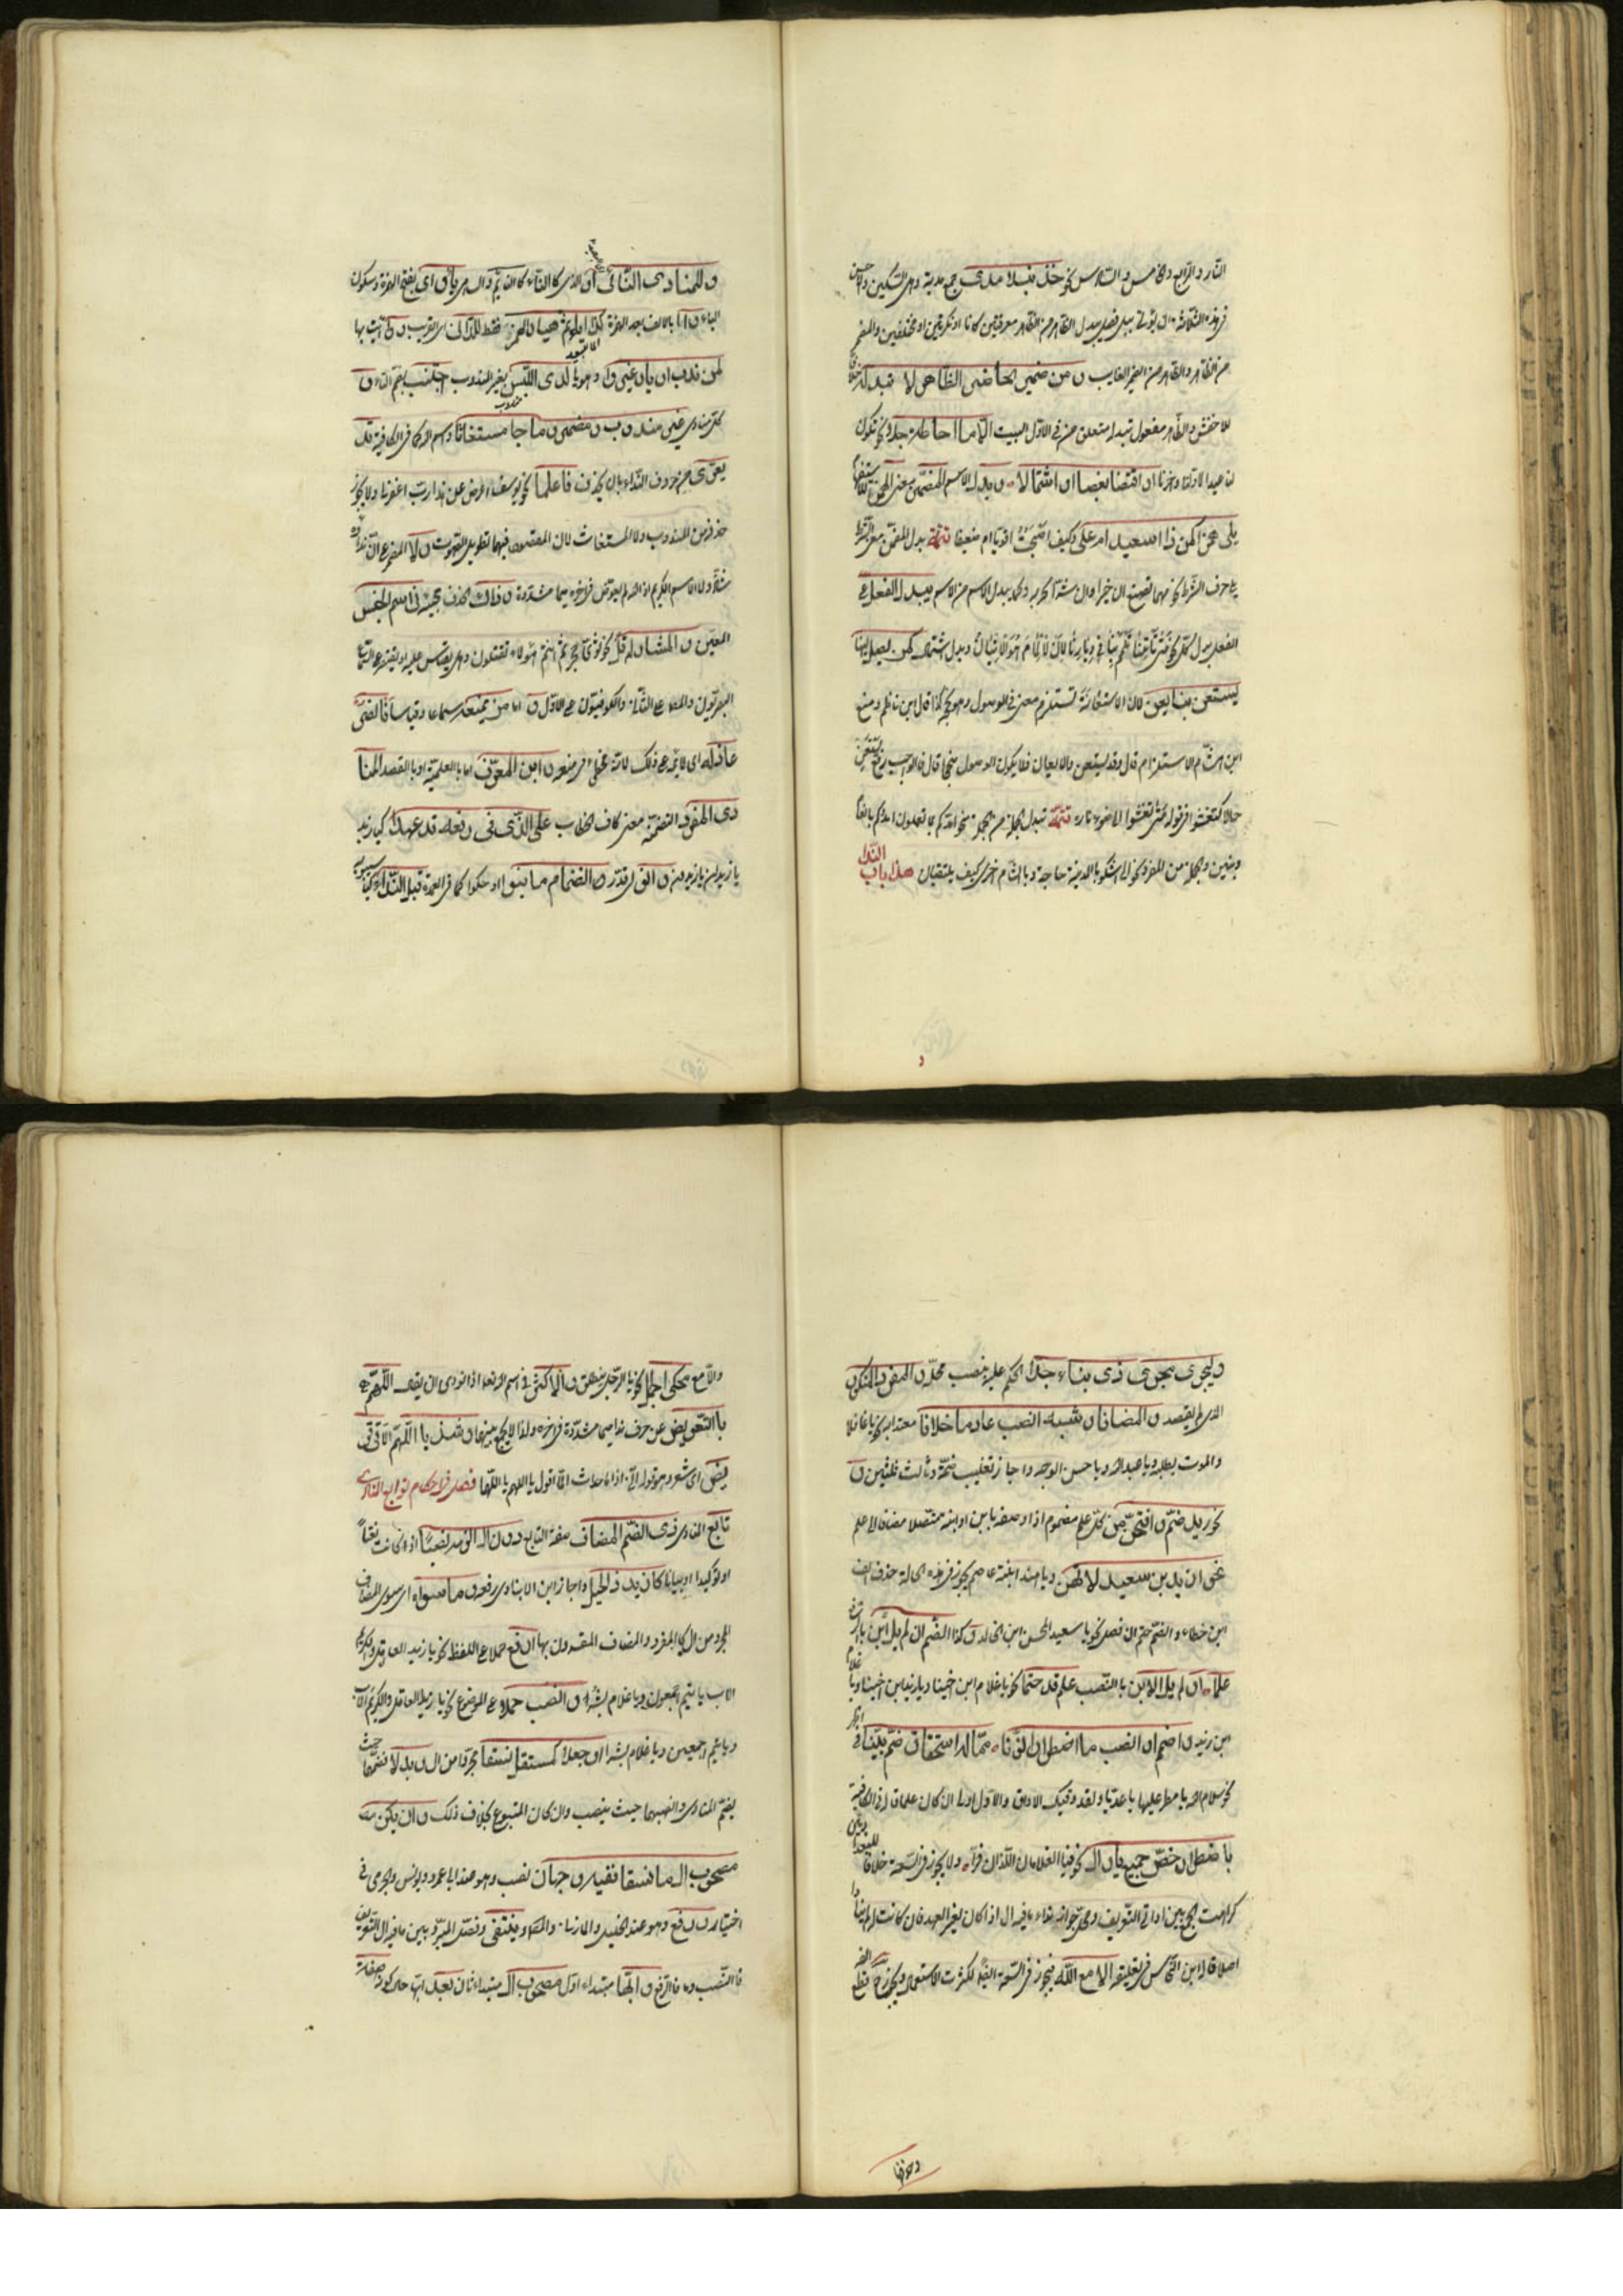 الثالث والرابع والخامس والسادس نحو خذ نبلا مدى جمع مدية وهى السكين والاحسن
فى هذه الثلاثة ان يؤتى ببل فصل يبدل الظاهر من الظاهر معرفتين كانا او نكرتين او مختلفين والمضمر
من الظاهر والظاهر من الضمير الغايب ومن ضمير الحاضر الظاهر لا تبدله خلافا
للاخفش والظاهر مفعول تبدله متعلق من فى الاول البيت الا ما احاطة جلا نحو تكون
لنا عيدا لاولنا وآخرنا او اقتضا بعضا او اشتمالا وبدل الاسم المضمن معنى الهمز للاستفهام
يلى همزا كمن ذا اسعيد ام على وكيف اصبحت اقويا ام ضعيفا تتمة بدل المضمن معنى الشرط
يلى حرف الشرط نحو مهما تصنع ان خيرا وان شرا تجز به وكما يبدل الاسم من الاسم يبدل الفعل من
الفعل بدل كل نحو متى تأتنا تلمم بنا فى ديارنا وبدل اشتمال كمن يصل الينا
يستعن بنا يعن لان الاستعانة تستلزم معنى فى الوصول وهو نجحه كذا قال ابن ناظم ومنع
ابن هشام الاستلزام قال وقد يستعن ولا يعان فلا يكون الوصول منجحا قال فالواجب رفع يستعن
حالا كتعشو فى قوله متى تأته تعشو الى ضوء ناره تتمة تبدل الجملة من الجملة نحو امدكم بما تعلمون امدكم بانعام
وبنين والجملة من المفرد نحو الى الله اشكو بالمدينة حاجة وبالشام اخرى كيف يلتقيان هذا باب النداء
وللمنادى الناء او الذى كالناء كالنائم والساهى يا واى بفتح الهمزة وسكون
الياء وآ بالالف بعد الهمزة كذا ايا ثم هيا والهمز فقط للدانى اى القريب ووا ائت بها
لمن ندب او يا وغير وا وهو يا لدى اللبس بغير المندوب اجتنب بضم التاء و
كل منادى غير مندوب ومضمر وما جا مستغاثا واسم الله كما فى الكافية قد
يعرى من حروف النداء بان يحذف فاعلما نحو يوسف اعرض عن هذا رب اغفرنا ولا يجوز
حذفه من المندوب ولا المستغاث لان المقصود فيهما تطويل الصوت ولا المضمر على ان ندائه
شاذ ولا الاسم الكريم اذا لم يعوض فى آخره ميما مشددة وذاك الحذف يجيئ فى اسم الجنس
المعين والمشار له قل نحو ثوبى حجر ثم انتم هؤلاء تقتلون وهل يقاس عليه او يقتصر على السماع
البصريون والمص على الثانى والكوفيون على الاول و اما من يمنعه سماعا وقياسا فانصر
عاذله اى لائمه على ذلك لانه مخطئ فى منعه وابن المعرف اما بالعلمية او بالقصد المنا
دى المفرد التضمنه معنى كاف الخطاب على الذى فى رفعه قد عهدا كيا زيد
يا زيدان يا زيدون وانو اى قدر انضمام ما بنوا او حكوا كما فى العمدة قبل الندا كيا سيبويه
وليجر مجرى ذى بناء جددا الحكم عليه بنصب محله والمفرد المنكور
الذى لم يقصد والمضاف وشبهه انصب عادما خلافا معتدا به نحو يا غافلا
والموت يطلبه ويا عبد الله ويا حسن الوجه واجاز تغليب ضمة وثالث ثلثين و
نحو زيد ضم وافتحن من كل علم مضموم اذا وصف بابن او ابنة متصلا مضاف الى علم
نحو ازيد بن سعيد لا تهن ويا هند ابنة عاصم يجوز فى هذه الحالة حذف الف
ابن خطاء والضم حتم ان فصل نحو يا سعيد المحسن ابن خالد وكذا الضم ان لم يل ابن بالرفع
علما او لم يل الابن بالنصب علم قد حتما نحو يا غلام ابن اخينا ويا زيد ابن اخينا ويا غلام
ابن زيد واضمم او انصب ما اضطرارا نونا مما له استحقاق ضم بينا فى
نحو سلام الله يا مطر عليها يا عديا ولقد وقتك الاواق والاول اولى ان كان علما قاله فى الكافية
باضطرار خص جمع يا وال نحو فيا الغلامان اللذان فرا ولا يجوز فى السعة خلافا للبغداديين
كراهة الجمع بين اداتى التعريف ومحل جوازه نداء ما فيه ال اذا كان لغير العهد فان كانت له لم يناد
اصلا قاله ابن النحاس فى تعليقه الا مع الله فيجوز فى السعة ايضا لكثرت الاستعمال ويجوز ح قطع الفه
وحذفها
والا مع محكى الجمل نحو يا الرجل منطلق والاكثر فى اسم الله تعالى اذا نودى ان يقال اللهم
بالتعويض عن حرف نداء ميما مشددة فى آخره ولذا لا يجمع بينهما وشذ يا اللهم الا فى قر
يض اى شعر وهو قوله انى اذا ما حدث الما اقول يا اللهم يا اللهما فصل فى احكام توابع المنادى
تابع المنادى ذى الضم المضاف صفة التابع دون ال الزمه نصبا اذا كانت نعتا
او توكيدا او بيانا كازيد ذا الحيل واجاز ابن الانبارى رفعه وما سواه اى سوى المضاف
المجرد من ال كالمفرد والمضاف المقرون بها ارفع حملا على اللفظ نحو يا زيد العاقل والكريم
الاب يا تيم اجمعون ويا غلام بشر او انصب حملا على الموضع نحو يا زيد العاقل والكريم الاب
ويا تيم اجمعين ويا غلام بشرا او جعلا كمستقل نسقا مجردا من ال وبدلا فضمهما حيث
يضم المنادى وانصبهما حيث ينصب وان كان المتبوع بخلاف ذلك وان يكن
مصحوب ال ما نسقا ففيه وجهان نصب وهو عند ابى عمرو ويونس والجرمى فى
اختياره ورفع وهو عند الخليل والمازنى والمص وينتقى وفصل المبرد بين ما فيه ال للتعريف
فالنصب والا فالرفع وايها مبتداء اول مصحوب ال مبتداء ثان بعد ايها حال كونه صفة